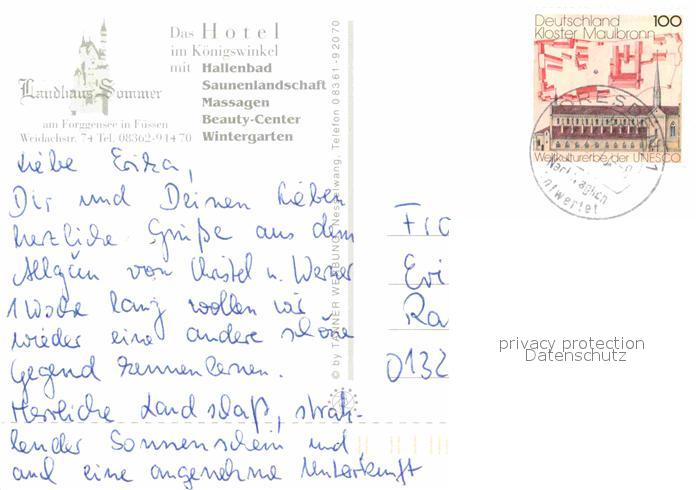 Das Hotel
im Königswinkel
mit Hallenbad
Saunenlandschaft
Massagen
Beauty-Center
Wintergarten
Landhaus Sommer
am Forggensee in Füssen
Weidachstr. 74 Tel. 08362-91470
© by TANNER WERBUNG, Nesselwang, Telefon 08361-92070
Deutschland 100
Kloster Maulbronn
Weltkulturerbe der UNESCO
DRESDEN
nachträglich
entwertet
Liebe Erika,
Dir und Deinen Lieben
herzliche Grüße aus dem
Allgäu von Christel u. Werner
1 Woche lang wollen wir
wieder eine andere schöne
Gegend kennenlernen.
Herrliche Landschaft, strah-
lender Sonnenschein und
und eine angenehme Unterkunft
Eri
Ra
0132
privacy protection
Datenschutz